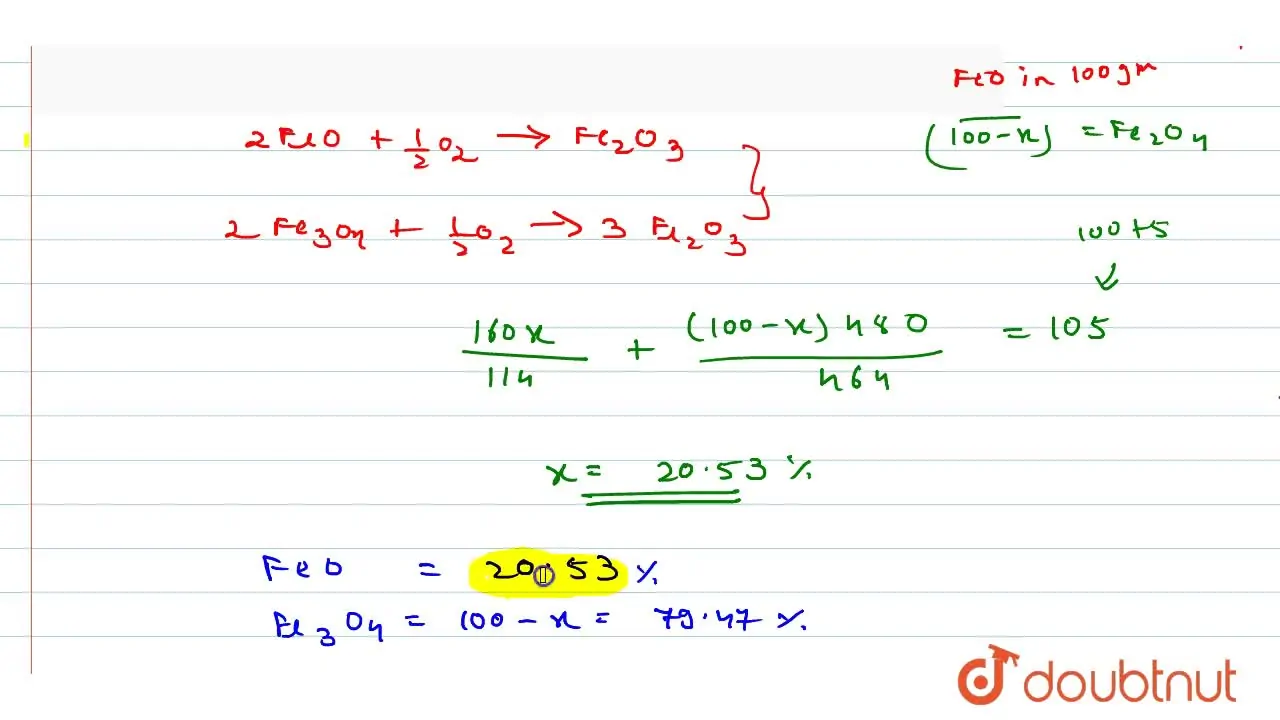 FeO in 100gm
(100-x) = Fe2O4
2FeO + 1/2 O2 → Fe2O3
2 Fe3O4 + 1/2 O2 → 3 Fe2O3
100+5
160x/114 + (100-x) 480/464 = 105
x = 20.53 %
FeO = 20.53 %
Fe3O4 = 100 - x = 79.47 %
doubtnut